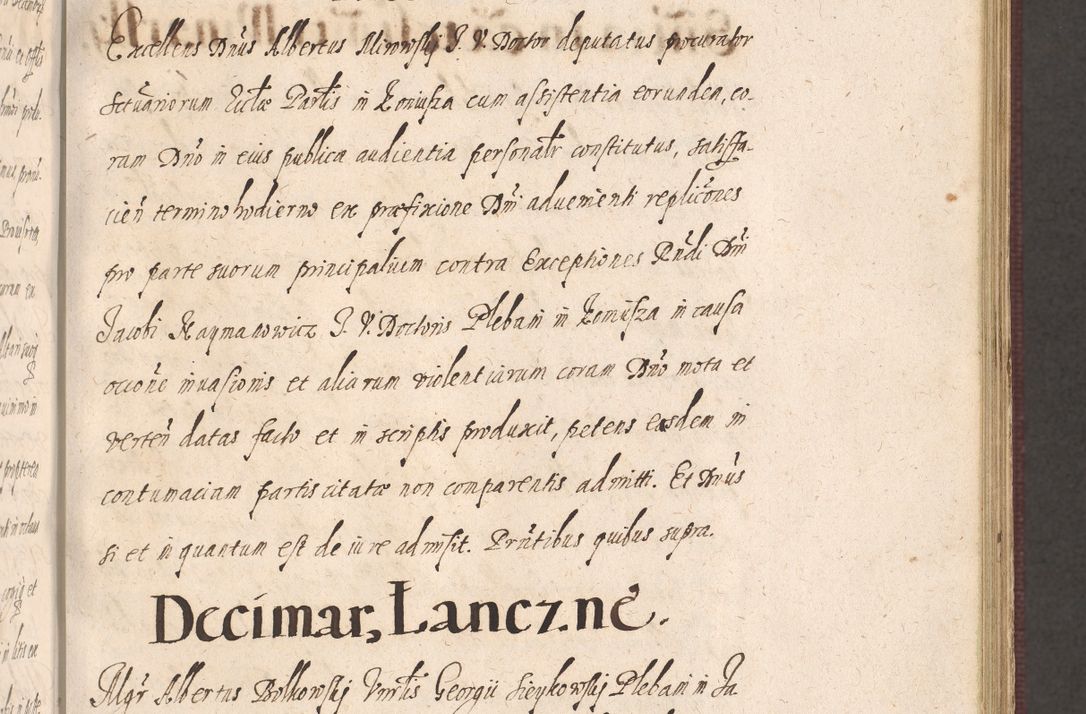 Excellens Dnūs Albertus Mirowskij I. V. Doctor deputatus procurator
Sctuariorum Ecclæ Parlis in Koniusza cum assistentia eorundea, co-
ram Dnō in eius publica audientia personalr constitutus, satisfa-
cien̄ termino hodierno ex præfixione Dni adueniēnti replicōnes
pro parte suorum principalium contra Exceptiones Rndi Dni
Jacobi Naymanowicz I. V. Doctoris Plebani in Koniusza in causa
occōne inuasionis et aliarum violentiarum coram Dnō mota et
verten̄ datas facto et in scriptis produxit, petens easdem in
contumaciam partis citatæ non comparentis admitti. Et Dnūs
si et in quantum est de iure admisit. Prntibus quibus supra.
Decimar, Łanczne.
Mgr Albertus Bolkowskij Vnrlis Georgii Sieykowskij Plebani in Ja